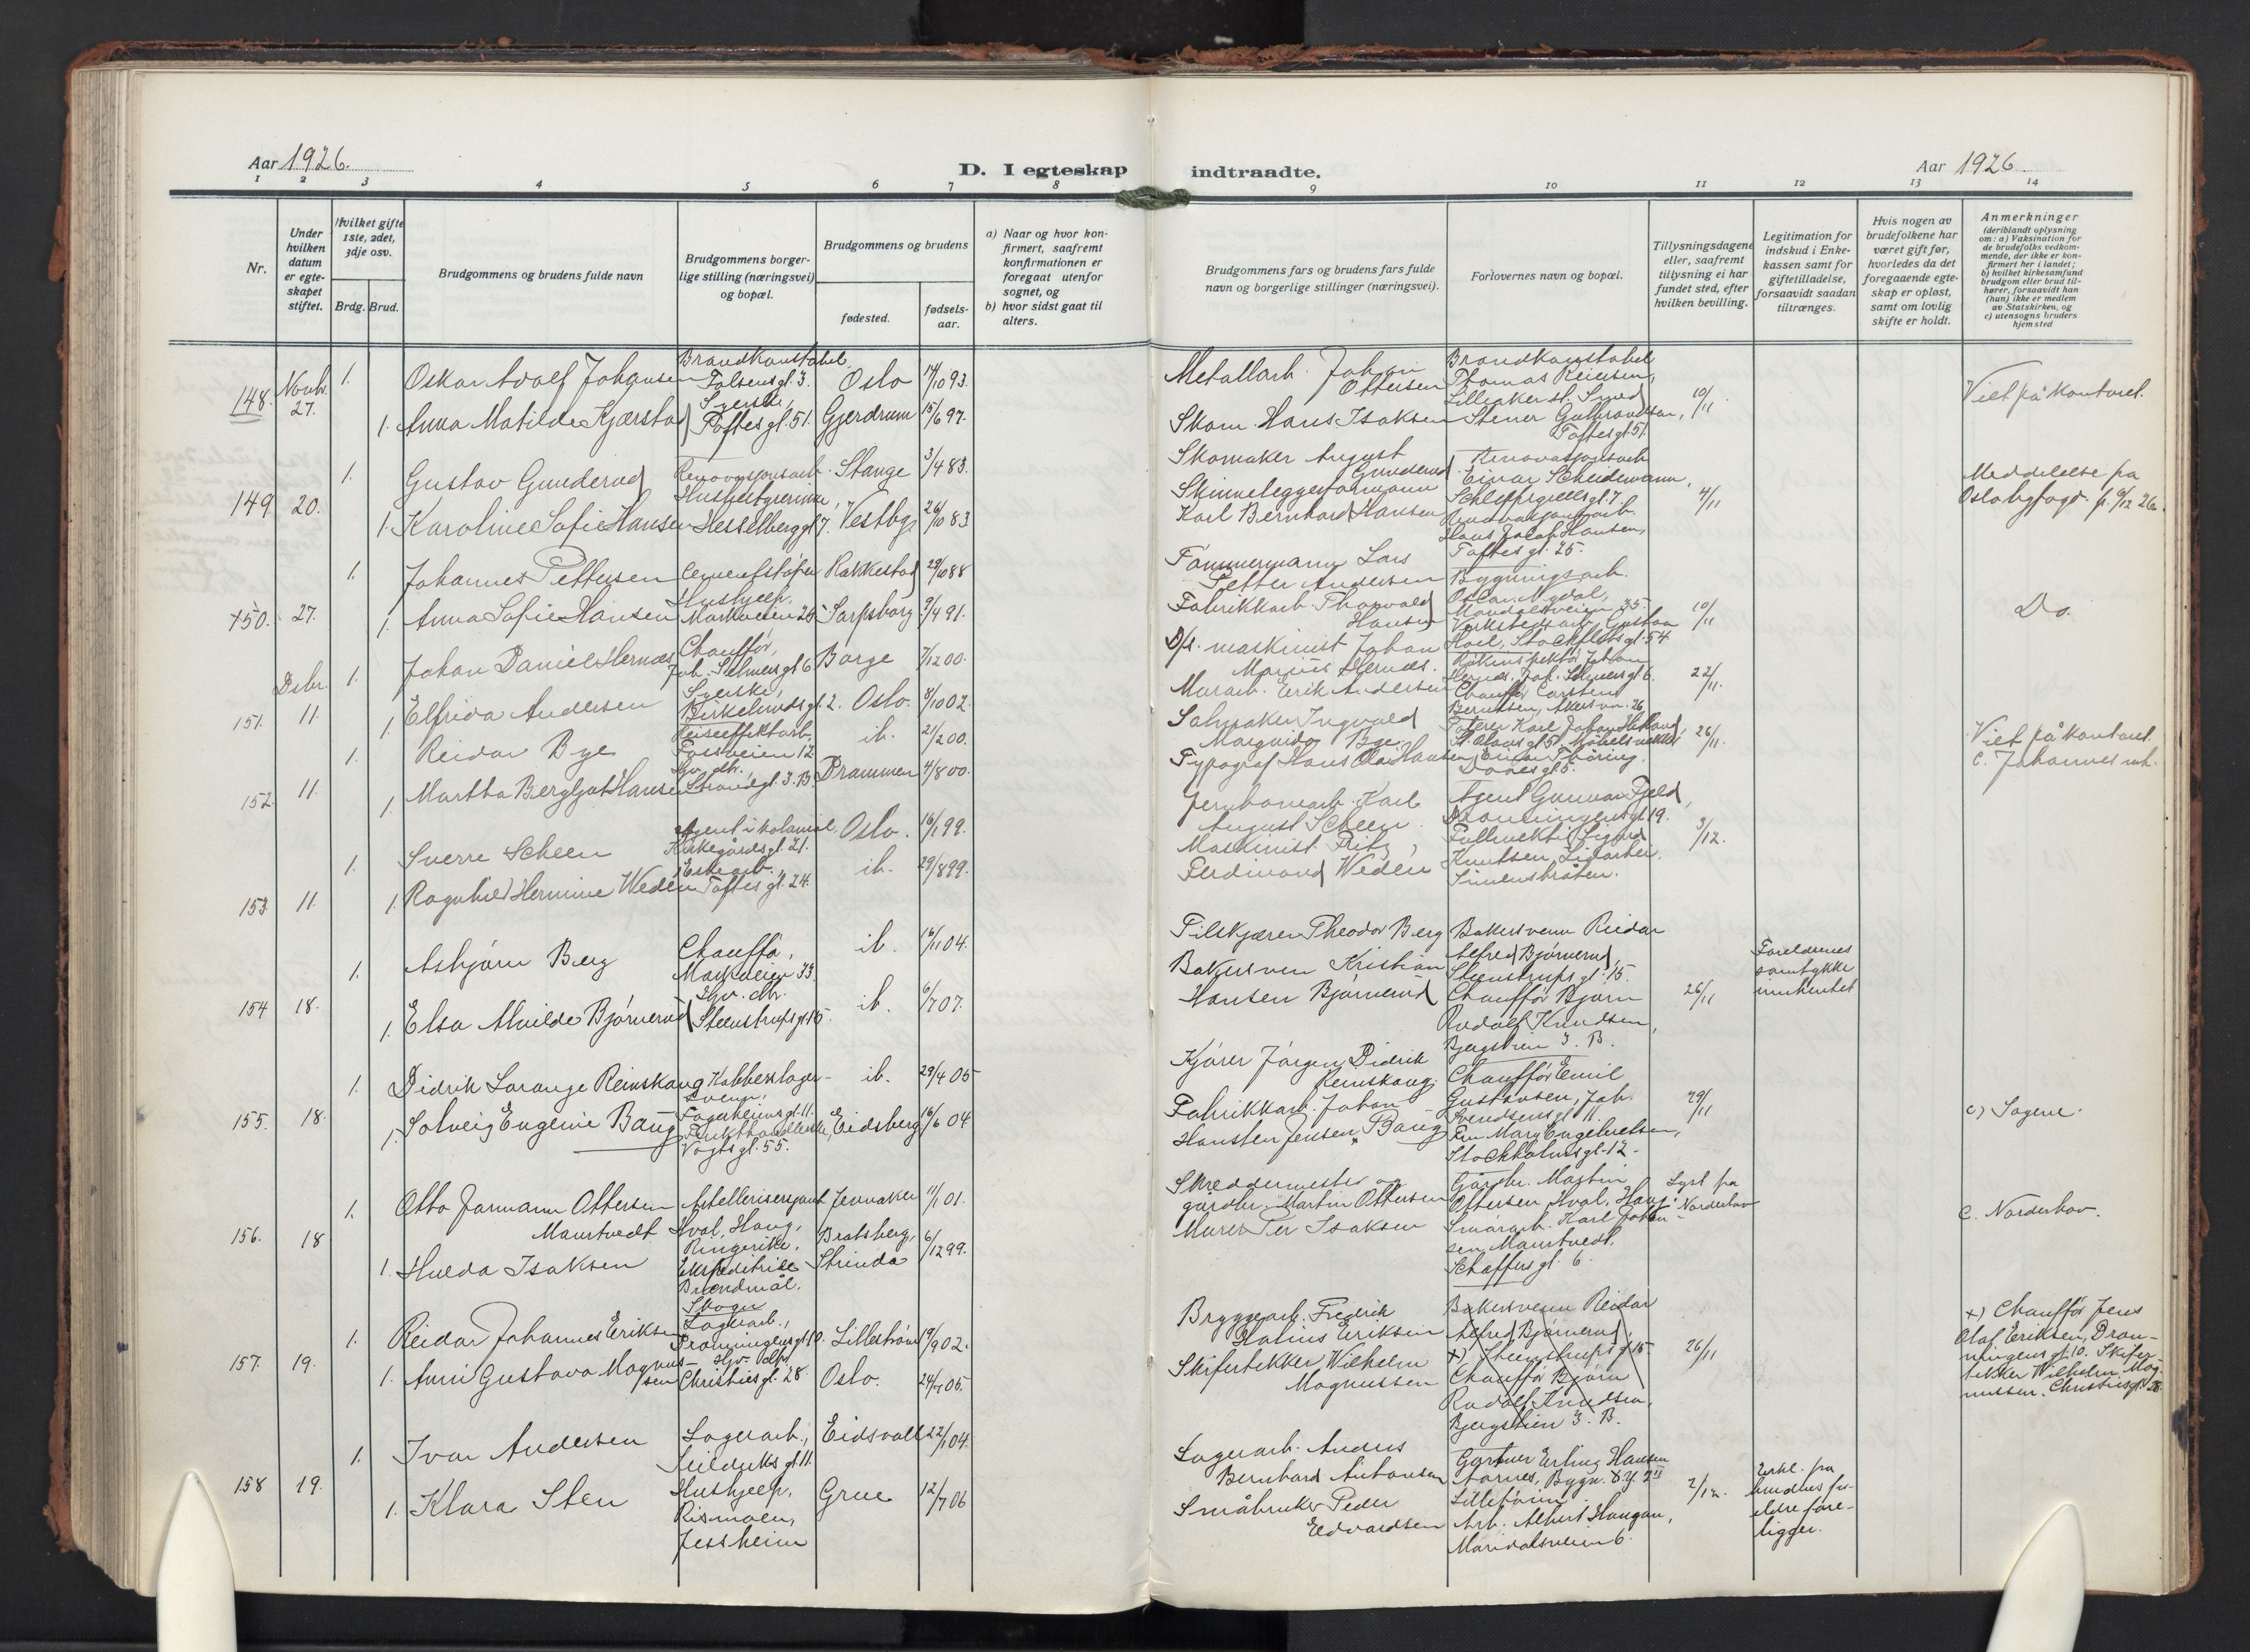 Aar 1926.
D. I egteskap indtraadte.
Aar 1926
1 2 3 4 5 6 7 8 9 10 11 12 13 14
Nr.
Under hvilken datum er egteskapet stiftet.
Hvilket gifte 1ste, 2det, 3dje osv.
Brdg. Brud.
Brudgommens og brudens fulde navn
Brudgommens borgerlige stilling (næringsvei) og bopæl.
Brudgommens og brudens
fødested.
fødselsaar.
a) Naar og hvor konfirmert, saafremt konfirmationen er foregaat utenfor sognet, og
b) hvor sidst gaat til alters.
Brudgommens fars og brudens fars fulde navn og borgerlige stillinger (næringsvei).
Forlovernes navn og bopæl.
Tillysningsdagene eller, saafremt tillysning ei har fundet sted, efter hvilken bevilling.
Legitimation for indskud i Enkekassen samt for giftetilladelse, forsaavidt saadan tiltrænges.
Hvis nogen av brudefolkene har været gift før, hvorledes da det foregaaende egteskap er opløst, samt om lovlig skifte er holdt.
Anmerkninger (deriblandt oplysning om: a) Vaksination for de brudefolks vedkommende, der ikke er konfirmert her i landet; b) hvilket kirkesamfund brudgom eller brud tilhører, forsaavidt han (hun) ikke er medlem av Statskirken, og c) utensogns bruders hjemsted
148. Novbr. 27.
1. Oskar Adolf Johansen
Brandkonstabel
Falsensgt. 3.
Oslo 14/10 93.
1. Anna Matilde Kjærstad
Syerske,
Toftesgt. 51.
Gjerdrum 15/6 97.
Metallarb. Johan Ottersen
Skom. Hans Isaksen
Brandkonstabel
Thomas Reiersen,
Lilleaker st. Smed
Stener Gulbrandsen,
Toftesgt. 51.
10/11.
Viet på kontoret.
149. 20.
1. Gustav Gunderud
Renovasjonsarb.
Stange 3/4 83.
1. Karoline Sofie Hansen
Husbestyrerinne,
Hesselberggt. 7.
Vestby 26/10 83
Skomaker August Gunderud
Skinneleggerformann
Karl Bernhard Hansen
Renovasjonsarb.
Einar Scheidemann,
Schleppegrellsgt. 7.
Renovasjonsarb.
Hans Jacob Hansen,
Toftesgt. 25.
4/11
Meddelelse fra
Oslo byfogd. fr. 9/12 26.
150. 27.
1. Johannes Pettersen
Cementstøper
Rakkestad 29/10 88
1. Anna Sofie Hansen
Hushjelp.
Markveien 25
Sarpsborg 9/4 91.
Tømmermann Lars
Petter Andersen
Fabrikkarb. Thorvald
Hansen
Bygningsarb.
Oscar Nydal,
Maridalsveien 35.
Verkstedsarb. Gustav
Hoel, Stockfletsgt. 54
10/11
Do.
151. Dsbr. 11.
1. Johan Daniel Hernæs
Chauffør,
Joh. Selmersgt 6
Borge 7/12 00.
1. Elfrida Andersen
Syerske,
Birkelundsgt. 2.
Oslo. 8/10 02.
D/s. maskinist Johan
Marius Hernæs.
Murarb. Erik Andersen
Hernæs, Joh. Selmersgt 6.
Chauffør Carsten
Berntsen, Akersvn. 26
22/11.
152. 11.
1. Reidar Bye
Reiseeffektarb.
Fossveien 12
ib. 21/2 00.
1. Martha Bergljot Hansen
Hgv. dtr.
Strandgt. 3. B.
Drammen 4/8 00.
Salmaker Ingvald
Margido Bye.
Typograf Hans Olai Hansen
St. Olavsgt 5. Møbelsnekker
Einar Thoring,
Dovesgt 5.
26/11.
Viet på kontoret.
c. Johannes mh.
153. 11.
1. Sverre Scheen
Agent i kolonial,
Kirkegårdsgt. 21.
Oslo. 16/1 99.
1. Ragnhild Hermine Weden
Eskearb.,
Toftesgt. 24.
ib. 29/8 99.
Jernbanearb. Karl
August Scheen.
Maskinist Fritz
Ferdinand Weden
Agent Gunnar Fjeld,
Dronningensgt 19.
Fullmektig Sigurd
Knutsen, Liaarbei.
Simensbråten.
3/12.
154 18.
1. Asbjørn Berg
Chauffø,
Markveien 33.
ib. 16/11 04.
1. Elsa Alvilde Bjørnerud
Hgv. dtr.
Steenstrupsgt 15.
ib. 6/7 07.
Pilskjærer Theodor Berg
Bakersven Kristian
Hansen Bjørnerud
Bakersvenn Reidar
Alfred Bjørnerud,
Steenstrupsgt. 15.
Chauffør Bjørn
Rudolf Knudsen,
Bjergstien 3. B.
26/11
Foreldrenes
samtykke
innhentet
155. 18.
1. Didrik Lorange Reinskaug
Kobberslager-
svenn,
Fagerheimsgt. 11.
ib. 29/4 05
1. Solveig Eugenie Bang
Frukthandlerske,
Vogtsgt. 55.
Eidsberg 16/6 04
Kjører Jørgen Didrik
Reinskaug.
Fabrikkarb. Johan
Hansten Jensen Bang
Chauffør Emil
Gustavsen, Joh.
Svendsensgt 11.
Fru Mary Engebretsen,
Stockholmsgt. 12-
29/11
c) Sagene.
156. 18
1. Otto Jarmann Ottersen
Maurtvedt
Artellerisersjant
Hval, Haug,
Ringerike,
Jevnaker 11/1 01.
1. Hulda Isaksen
Ekspeditrise
Brendmål.
Skogn
Bratsberg,
Strinda 6/12 99.
Skreddermester og
gårdbr. Martin Ottersen
Murer Per Isaksen
Gårdbr. Martin
Ottersen, Hval, Haug.
Smørarb. Karl Johan-
sen Maurtvedt.
Schaffersgt. 6.
Lyst fra
Norderhov
c. Norderhov.
157. 19.
1. Reidar Johannes Eriksen
Lagerarb.,
Dronningensgt 10.
Lillestrøm 19/9 02.
1. Anni Gustava Magnus-
sen
Hgv. dtr.
Christiesgt. 28.
Oslo. 24/1 05.
Bryggearb. Fredrik
Halius Eriksen
Skifertekker Wilhelm
Magnussen
Bakersvenn Reidar
Alfred Bjørnerud,
x) Steenstrupsgt 15.
Chauffør Bjørn
Rudolf Knudsen,
Bjergstien 3. B.
26/11
x) Chauffør Jens
Olaf Eriksen, Dron-
ningensgt 10. Skifer-
tekker Wilhelm Mag-
nussen. Christiesgt. 28.
158 19.
1. Ivar Andersen
Lagerarb.,
Seilduksgt 11.
Eidsvoll 22/1 04.
1. Klara Sten
Hushjelp,
Rismoen,
Jessheim
Grue 12/7 06
Lagerarb. Anders
Bernhard Antonsen
Småbruker Peder
Edvardsen
Gartner Erling Hansen
Aarnes, Bygn.
Arb. Albert Haugan,
Maridalsveien 6.
2/12.
Erkl. fra
brudens for-
eldre fore-
ligger.